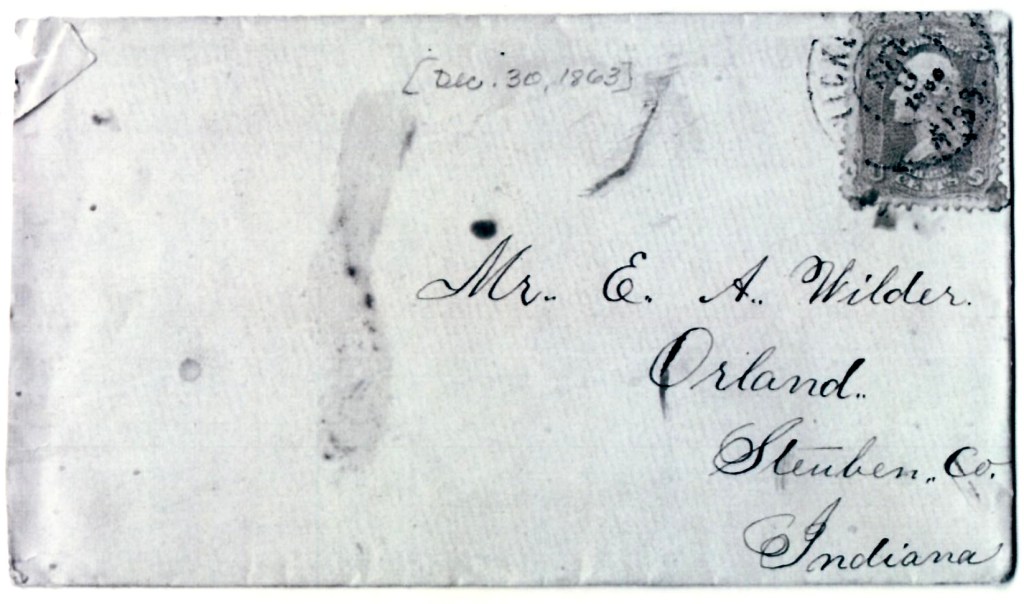 [Dec. 30, 1863]
Mr. E. A. Wilder.
Orland.
Steuben, Co.
Indiana